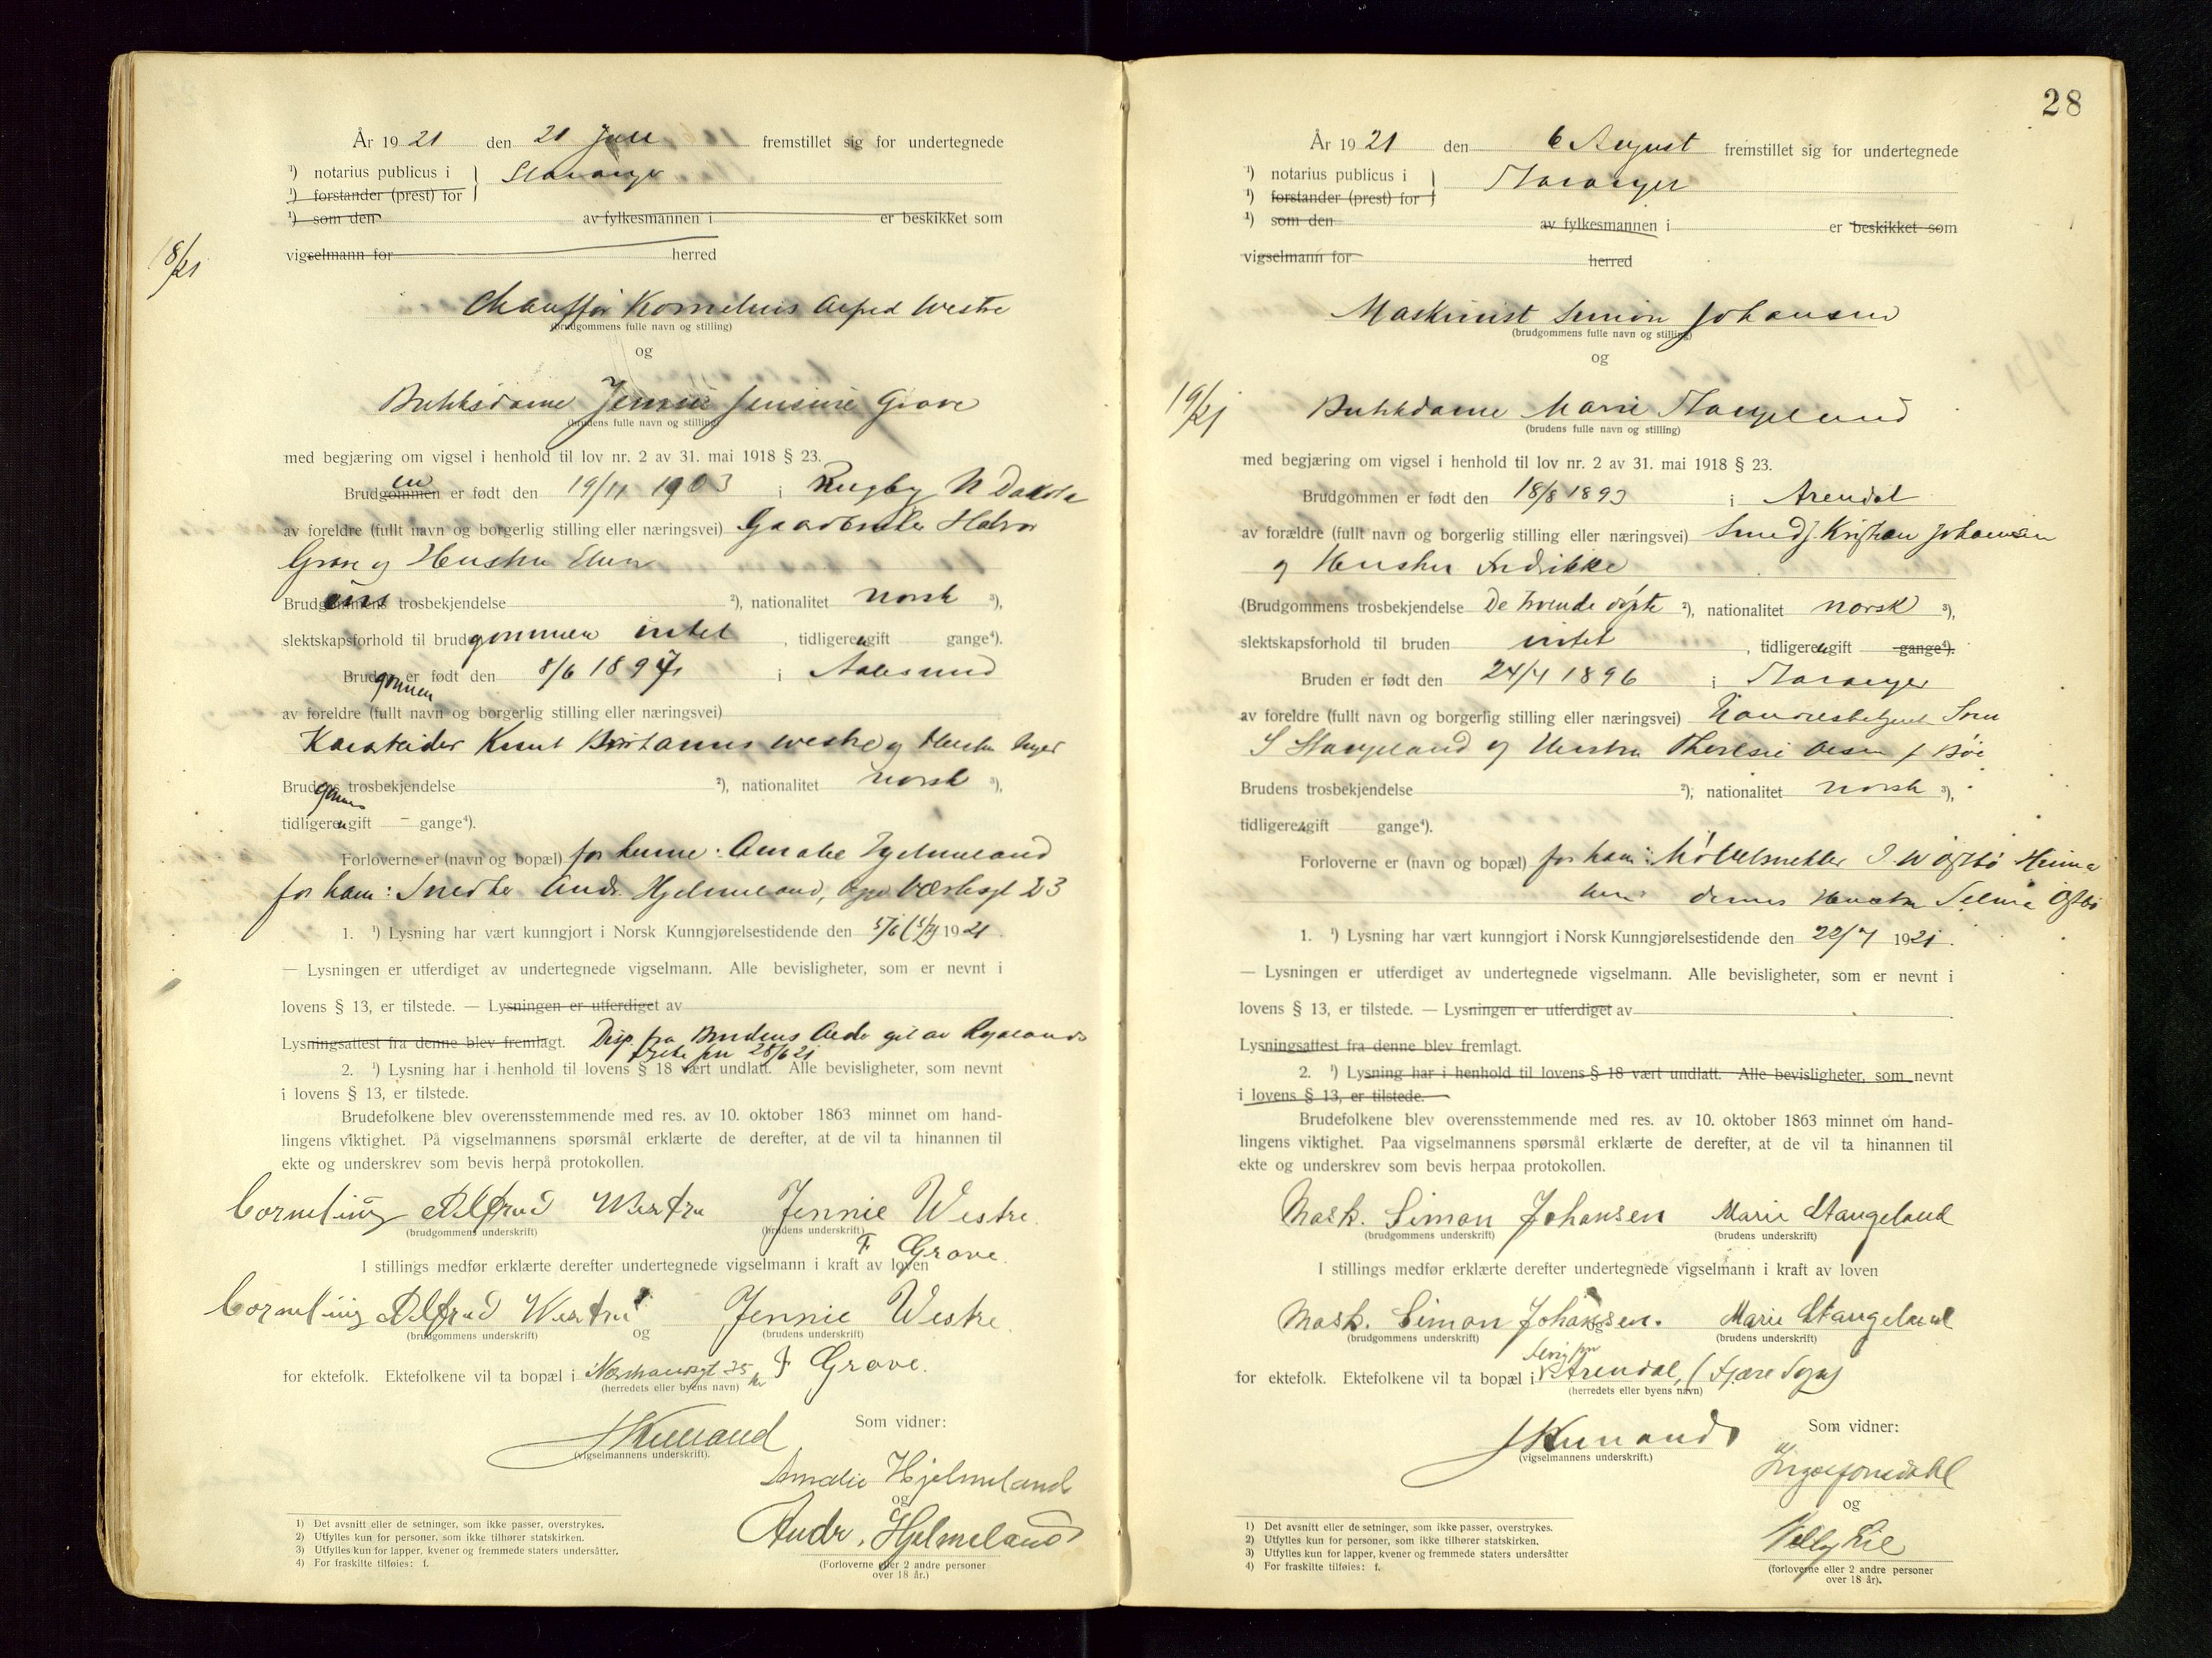 År 1921 den 21 Juli fremstillet sig for undertegnede
¹) notarius publicus i } Stavanger
¹) forstander (prest) for
¹) som den av fylkesmannen i er beskikket som
vigselmann for herred
18/21
Chauffør Kornelius Alfred Westre
(brudgommens fulle navn og stilling)
og
Butiksdame Jennie Jensine Grove
(brudens fulle navn og stilling)
med begjæring om vigsel i henhold til lov nr. 2 av 31. mai 1918 § 23.
Brudgommen en er født den 19/11 1903 i Rugby N Dakota
av foreldre (fullt navn og borgerlig stilling eller næringsvei) Gaardbruker Halvor
Grove og Hustru
Brudgommens ens trosbekjendelse ²), nationalitet norsk ³),
slektskapsforhold til brudgommen intet , tidligere gift gange⁴).
Bruden gommen er født den 8/6 1897 i Aalesund
av foreldre (fullt navn og borgerlig stilling eller næringsvei)
Knut westre og Hustru Inger
Brudens gommens trosbekjendelse ²), nationalitet norsk ³),
tidligere gift – gange⁴).
Forloverne er (navn og bopæl) for henne: Amalie Hjelmeland
for ham: Snedker Andr. Hjelmeland, 23
1. ¹) Lysning har vært kunngjort i Norsk Kunngjørelsestidende den 1921.
— Lysningen er utferdiget av undertegnede vigselmann. Alle bevisligheter, som er nevnt i
lovens § 13, er tilstede. — Lysningen er utferdiget av
Lysningsattest fra denne blev fremlagt. Disp. fra Brudens Alder git av Rogalands
fylke 28/6 21
2. ¹) Lysning har i henhold til lovens § 18 vært undlatt. Alle bevisligheter, som nevnt
i lovens § 13, er tilstede.
Brudefolkene blev overensstemmende med res. av 10. oktober 1863 minnet om hand-
lingens viktighet. På vigselmannens spørsmål erklærte de derefter, at de vil ta hinannen til
ekte og underskrev som bevis herpå protokollen.
Cornelius Alfred Westre Jennie Westre
(brudgommens underskrift) (brudens underskrift)
F Grove.
I stillings medfør erklærte derefter undertegnede vigselmann i kraft av loven
Cornelius Alfred Westre Jennie Westre.
(brudgommens underskrift) og (brudens underskrift)
for ektefolk. Ektefolkene vil ta bopæl i 25 F Grove.
(herredets eller byens navn)
Som vidner:
(vigselmannens underskrift).
Amalie Hjelmeland
og
Andr. Hjelmeland
(Forloverne eller 2 andre personer
over 18 år.)
1) Det avsnitt eller de setninger, som ikke passer, overstrykes.
2) Utfylles kun for personer, som ikke tilhører statskirken.
3) Utfylles kun for lapper, kvener og fremmede staters undersåtter.
4) For fraskilte tilføies: f.
28
År 1921 den 6 August fremstillet sig for undertegnede
¹) notarius publicus i } Stavanger
¹) forstander (prest) for
¹) som den av fylkesmannen i er beskikket som
vigselmann for herred
Maskinist Simon Johansen
(brudgommens fulle navn og stilling)
og
19/21
Butikdame Marie Stangeland
(brudens fulle navn og stilling)
med begjæring om vigsel i henhold til lov nr. 2 av 31. mai 1918 § 23.
Brudgommen er født den 18/8 1893 i Arendal
av forældre (fullt navn og borgerlig stilling eller næringsvei) Smed J. Kristian Johansen
og Hustru Fredrikke
(Brudgommens trosbekjendelse De troende døpte ²), nationalitet norsk ³),
slektskapsforhold til bruden intet , tidligere gift gange⁴).
Bruden er født den 24/4 1896 i Stavanger
av foreldre (fullt navn og borgerlig stilling eller næringsvei) Handelsbetjent
S Stangeland og Hustru Theresie Olsen f Bøe
Brudens trosbekjendelse ²), nationalitet norsk ³),
tidligere gift gange⁴).
Forloverne er (navn og bopæl) for ham: Møbelsnekker Østbø
hen: dennes Hustru Selma Østbø
1. ¹) Lysning har vært kunngjort i Norsk Kunngjørelsestidende den 22/7 1921.
— Lysningen er utferdiget av undertegnede vigselmann. Alle bevisligheter, som er nevnt i
lovens § 13, er tilstede. — Lysningen er utferdiget av
Lysningsattest fra denne blev fremlagt.
2. ¹) Lysning har i henhold til lovens § 18 vært undlatt. Alle bevisligheter, som nevnt
i lovens § 13, er tilstede.
Brudefolkene blev overensstemmende med res. av 10. oktober 1863 minnet om hand-
lingens viktighet. Paa vigselmannens spørsmål erklærte de derefter, at de vil ta hinannen til
ekte og underskrev som bevis herpaa protokollen.
Mask. Simon Johansen Marie Stangeland
(brudgommens underskrift) (brudens underskrift)
I stillings medfør erklærte derefter undertegnede vigselmann i kraft av loven
Mask. Simon Johansen. Marie Stangeland
(brudgommens underskrift) og (brudens underskrift)
for ektefolk. Ektefolkene vil ta bopæl i Arendal, (Fjære Sogn)
(herredets eller byens navn)
Som vidner:
(vigselmannens underskrift.)
og
Lie
(forloverne eller 2 andre personer
over 18 år).
1) Det avsnitt eller de setninger, som ikke passer, overstrykes.
2) Utfylles kun for personer, som ikke tilhører statskirken.
3) Utfylles kun for lapper, kvener og fremmede staters undersåtter
4) For fraskilte tilføies: f.